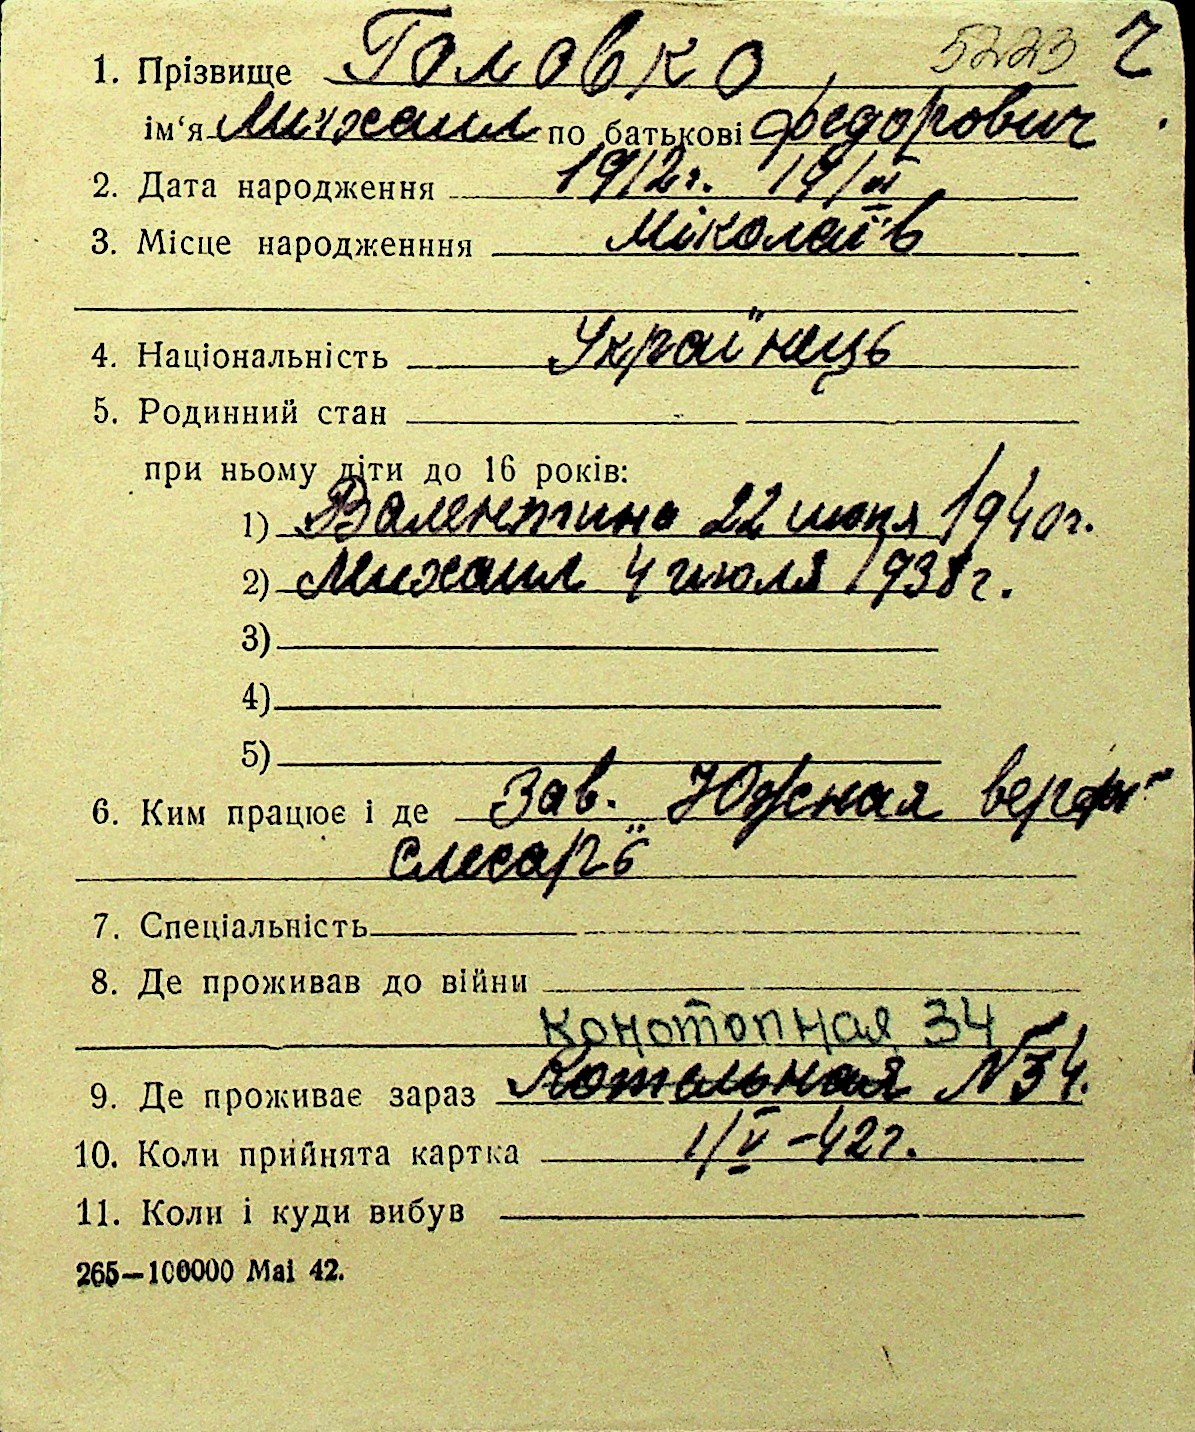 5223 Ч
1. Прізвище Головко
ім‘я Михаил по батькові Федорович
2. Дата народження 1912г. 19/VI
3. Місце народженння Міколаїв
4. Національність Українець
5. Родинний стан
при ньому діти до 16 років:
1) Валентина 22 июня 1940г.
2) Михаил 4 июля 1938г.
3)
4)
5)
6. Ким працює і де Зав. Южная верфь
слесарь
7. Спеціальність
8. Де проживав до війни
Конотопная 34
9. Де проживає зараз Котельная №34.
10. Коли прийнята картка 1/V-42г.
11. Коли і куди вибув
265—100000 Mai 42.